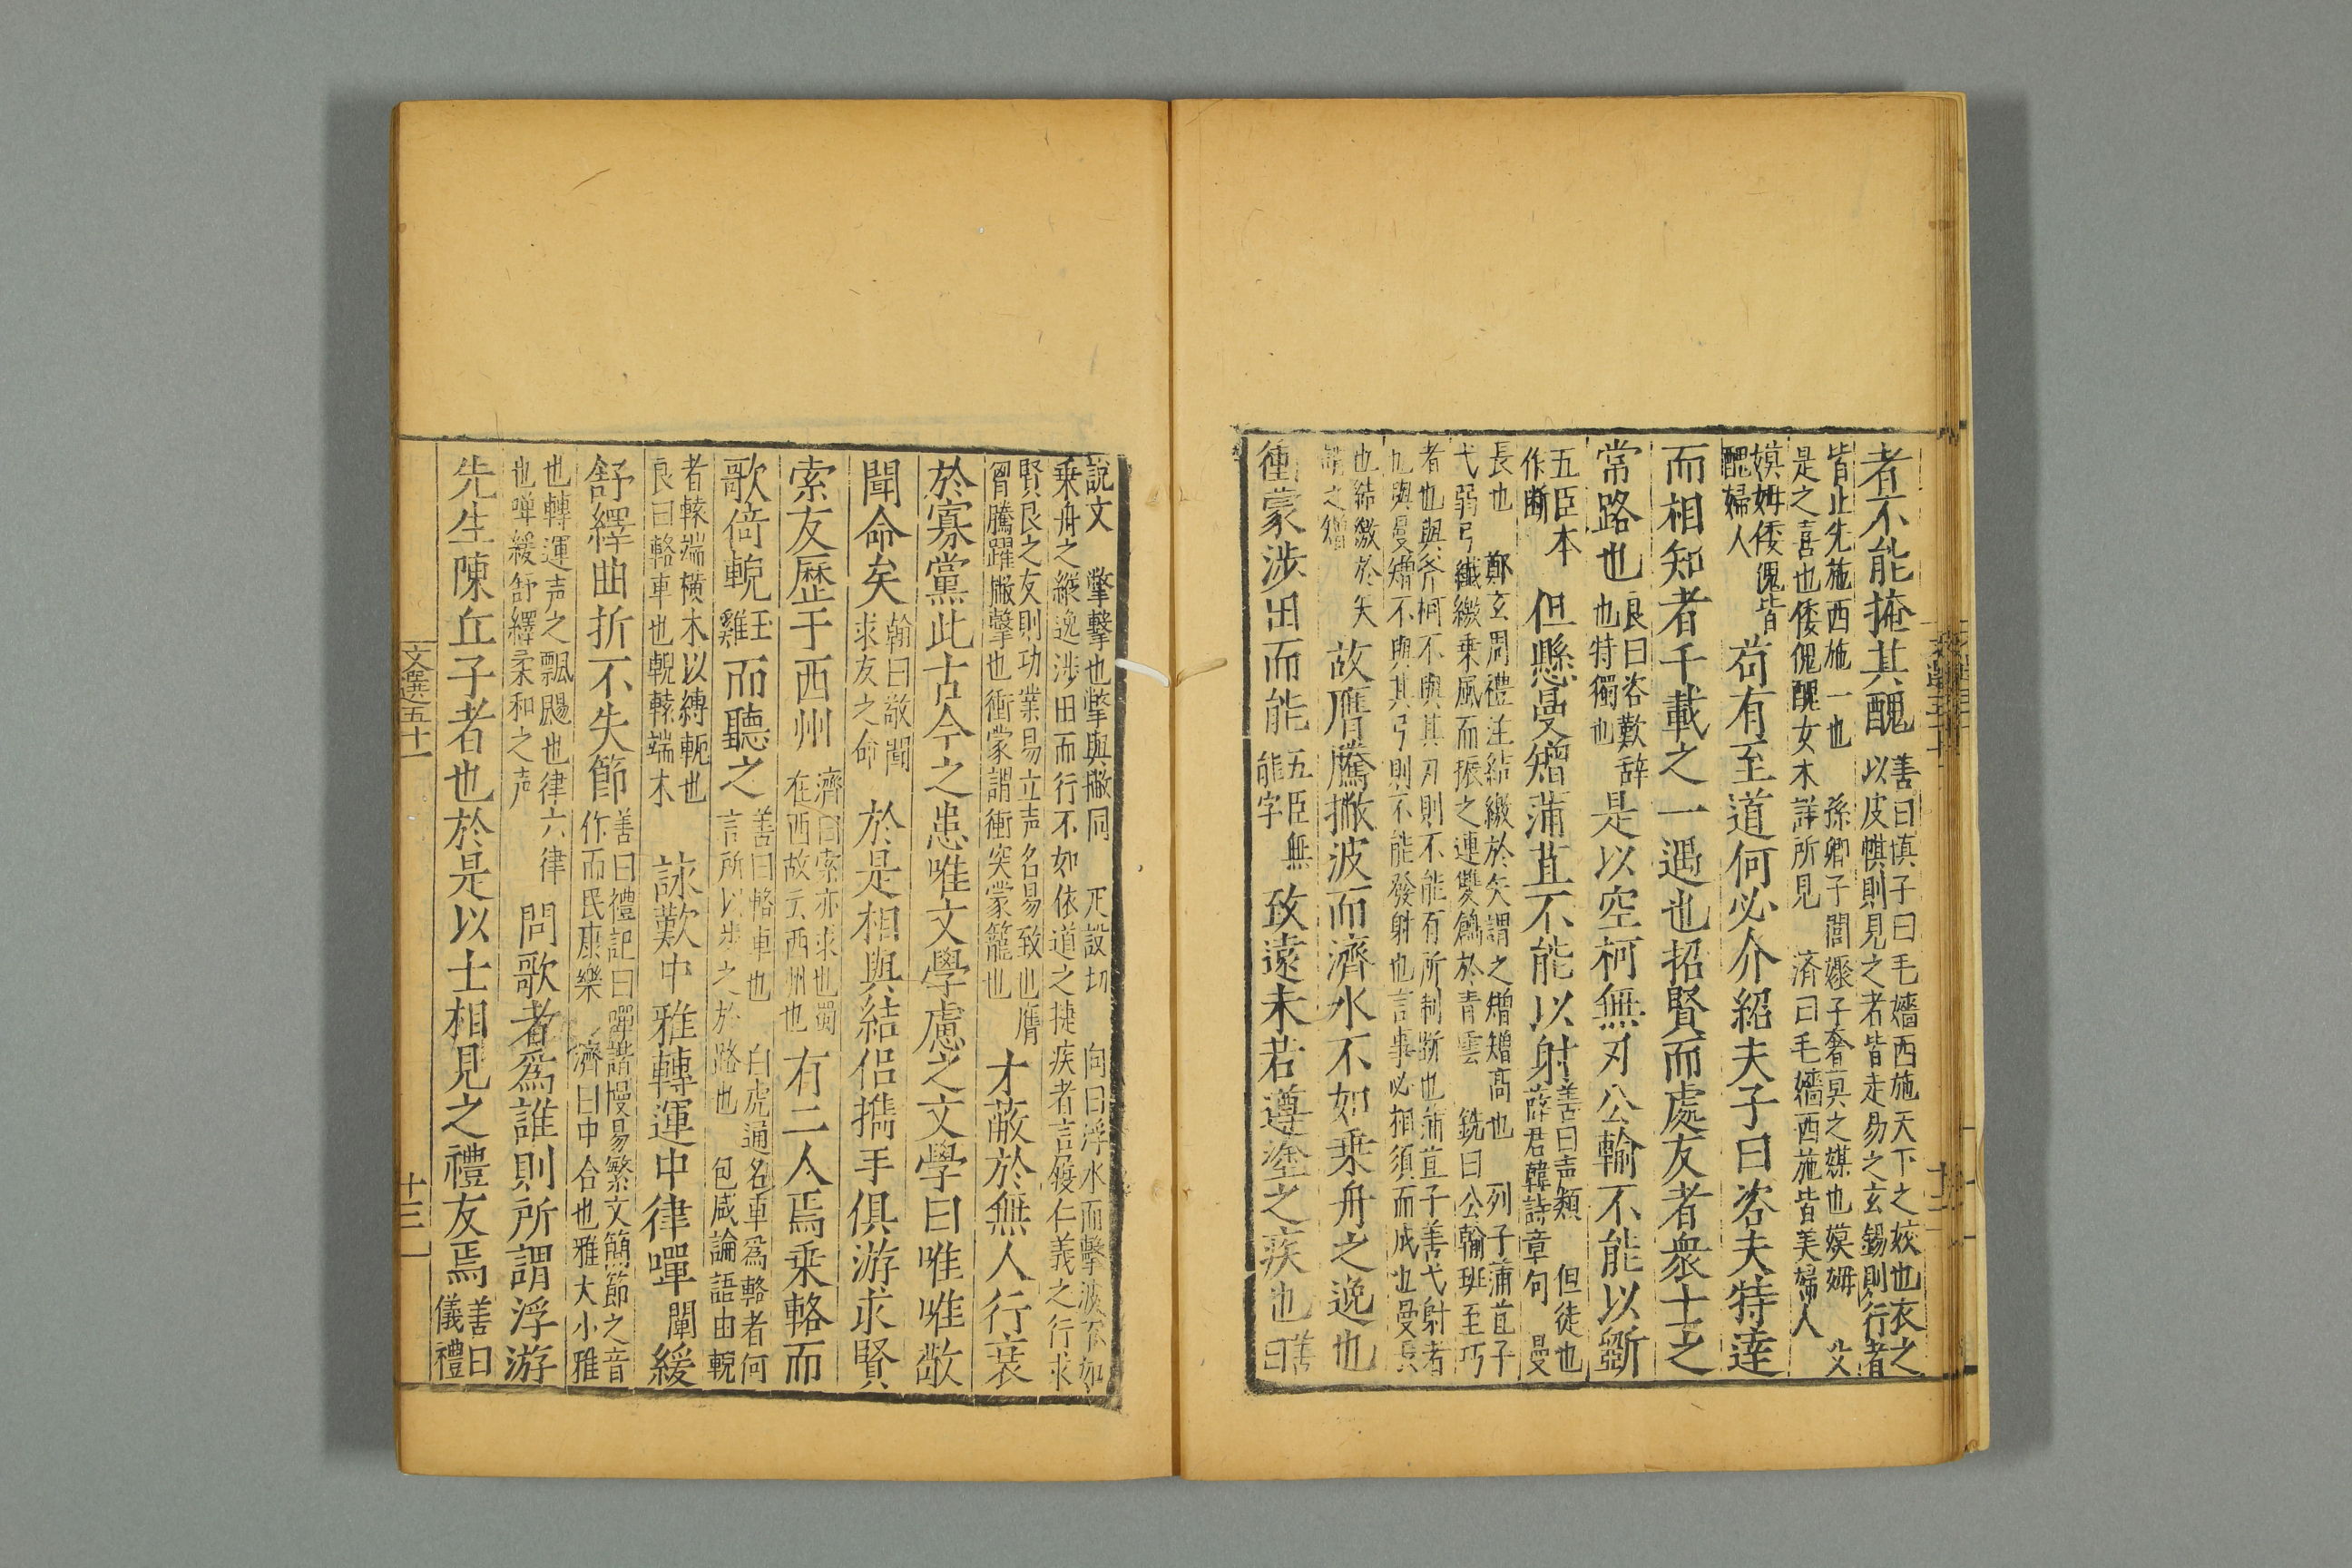 者不能掩其醜善曰慎子曰毛嬙西施天下之姣也衣之
以皮倛則見之者皆走易之玄錫則行者
皆止先施西施一也 孫卿子閭娵子奢莫之媒也嫫姆 父
是之喜也倭傀醜女未詳所見 濟曰毛嬙西施皆美婦人
嫫姆倭傀皆
醜婦人
苟有至道何必介紹夫子曰咨夫特達
而相知者千載之一遇也招賢而處友者衆士之
常路也良曰咨歎辞
也特獨也
是以空柯無刃公輸不能以斵
五臣本
作斷
但懸曼矰蒲苴不能以射善曰声類 但徒也
薛君韓詩章句 曼
長也 鄭玄周禮注結繳於矢謂之矰矰高也 列子蒲苴子
弋弱弓纖繳乗風而振之連雙鶬於青雲 銑曰公輸班至巧
者也與斧柯不與其刃則不能有所制斷也蒲苴子善弋射者
也與曼矰不與其弓則不能發射也言事必相須而成也曼長
也結繳於矢
謂之矰
故膺騰撇波而濟水不如乗舟之逸也
衝蒙涉田而能五臣無
能字
致遠未若遵塗之疾也善
曰
説文 擎擊也擎與撇同 疋設切 向曰浮水而擊波不如
乗舟之縱逸涉田而行不如依道之捷疾者言履仁義之行求
賢良之友則功業易立声名易致也膺
胷騰躍撇擊也衝蒙謂衝突蒙籠也
才蔽於無人行衰
於寡黨此古今之患唯文學慮之文學曰唯唯敬
聞命矣翰曰敬聞
求友之命
於是相與結侣攜手俱游求賢
索友歴于西州濟曰索亦求也蜀
在西故云西州也
有二人焉乗輅而
歌倚輗五
雞
而聽之善曰輅車也 白虎通名車爲輅者何
言所以步之於路也 包咸論語由輗
者轅端横木以縛軛也
良曰輅車也輗轅端木
詠歎中雅轉運中律嘽闡緩
舒繹曲折不失節善曰禮記曰嘽諧慢易繁文簡節之音
作而民康樂 濟曰中合也雅大小雅
也轉運声之飄颺也律六律
也嘽緩舒繹柔和之声
問歌者爲誰則所謂浮游
先生陳丘子者也於是以士相見之禮友焉善曰
儀禮
文選五十一
十三